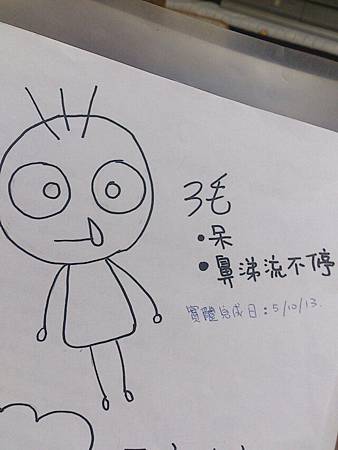 3毛
•呆
•鼻涕流不停
實體完成日:5/10/13.